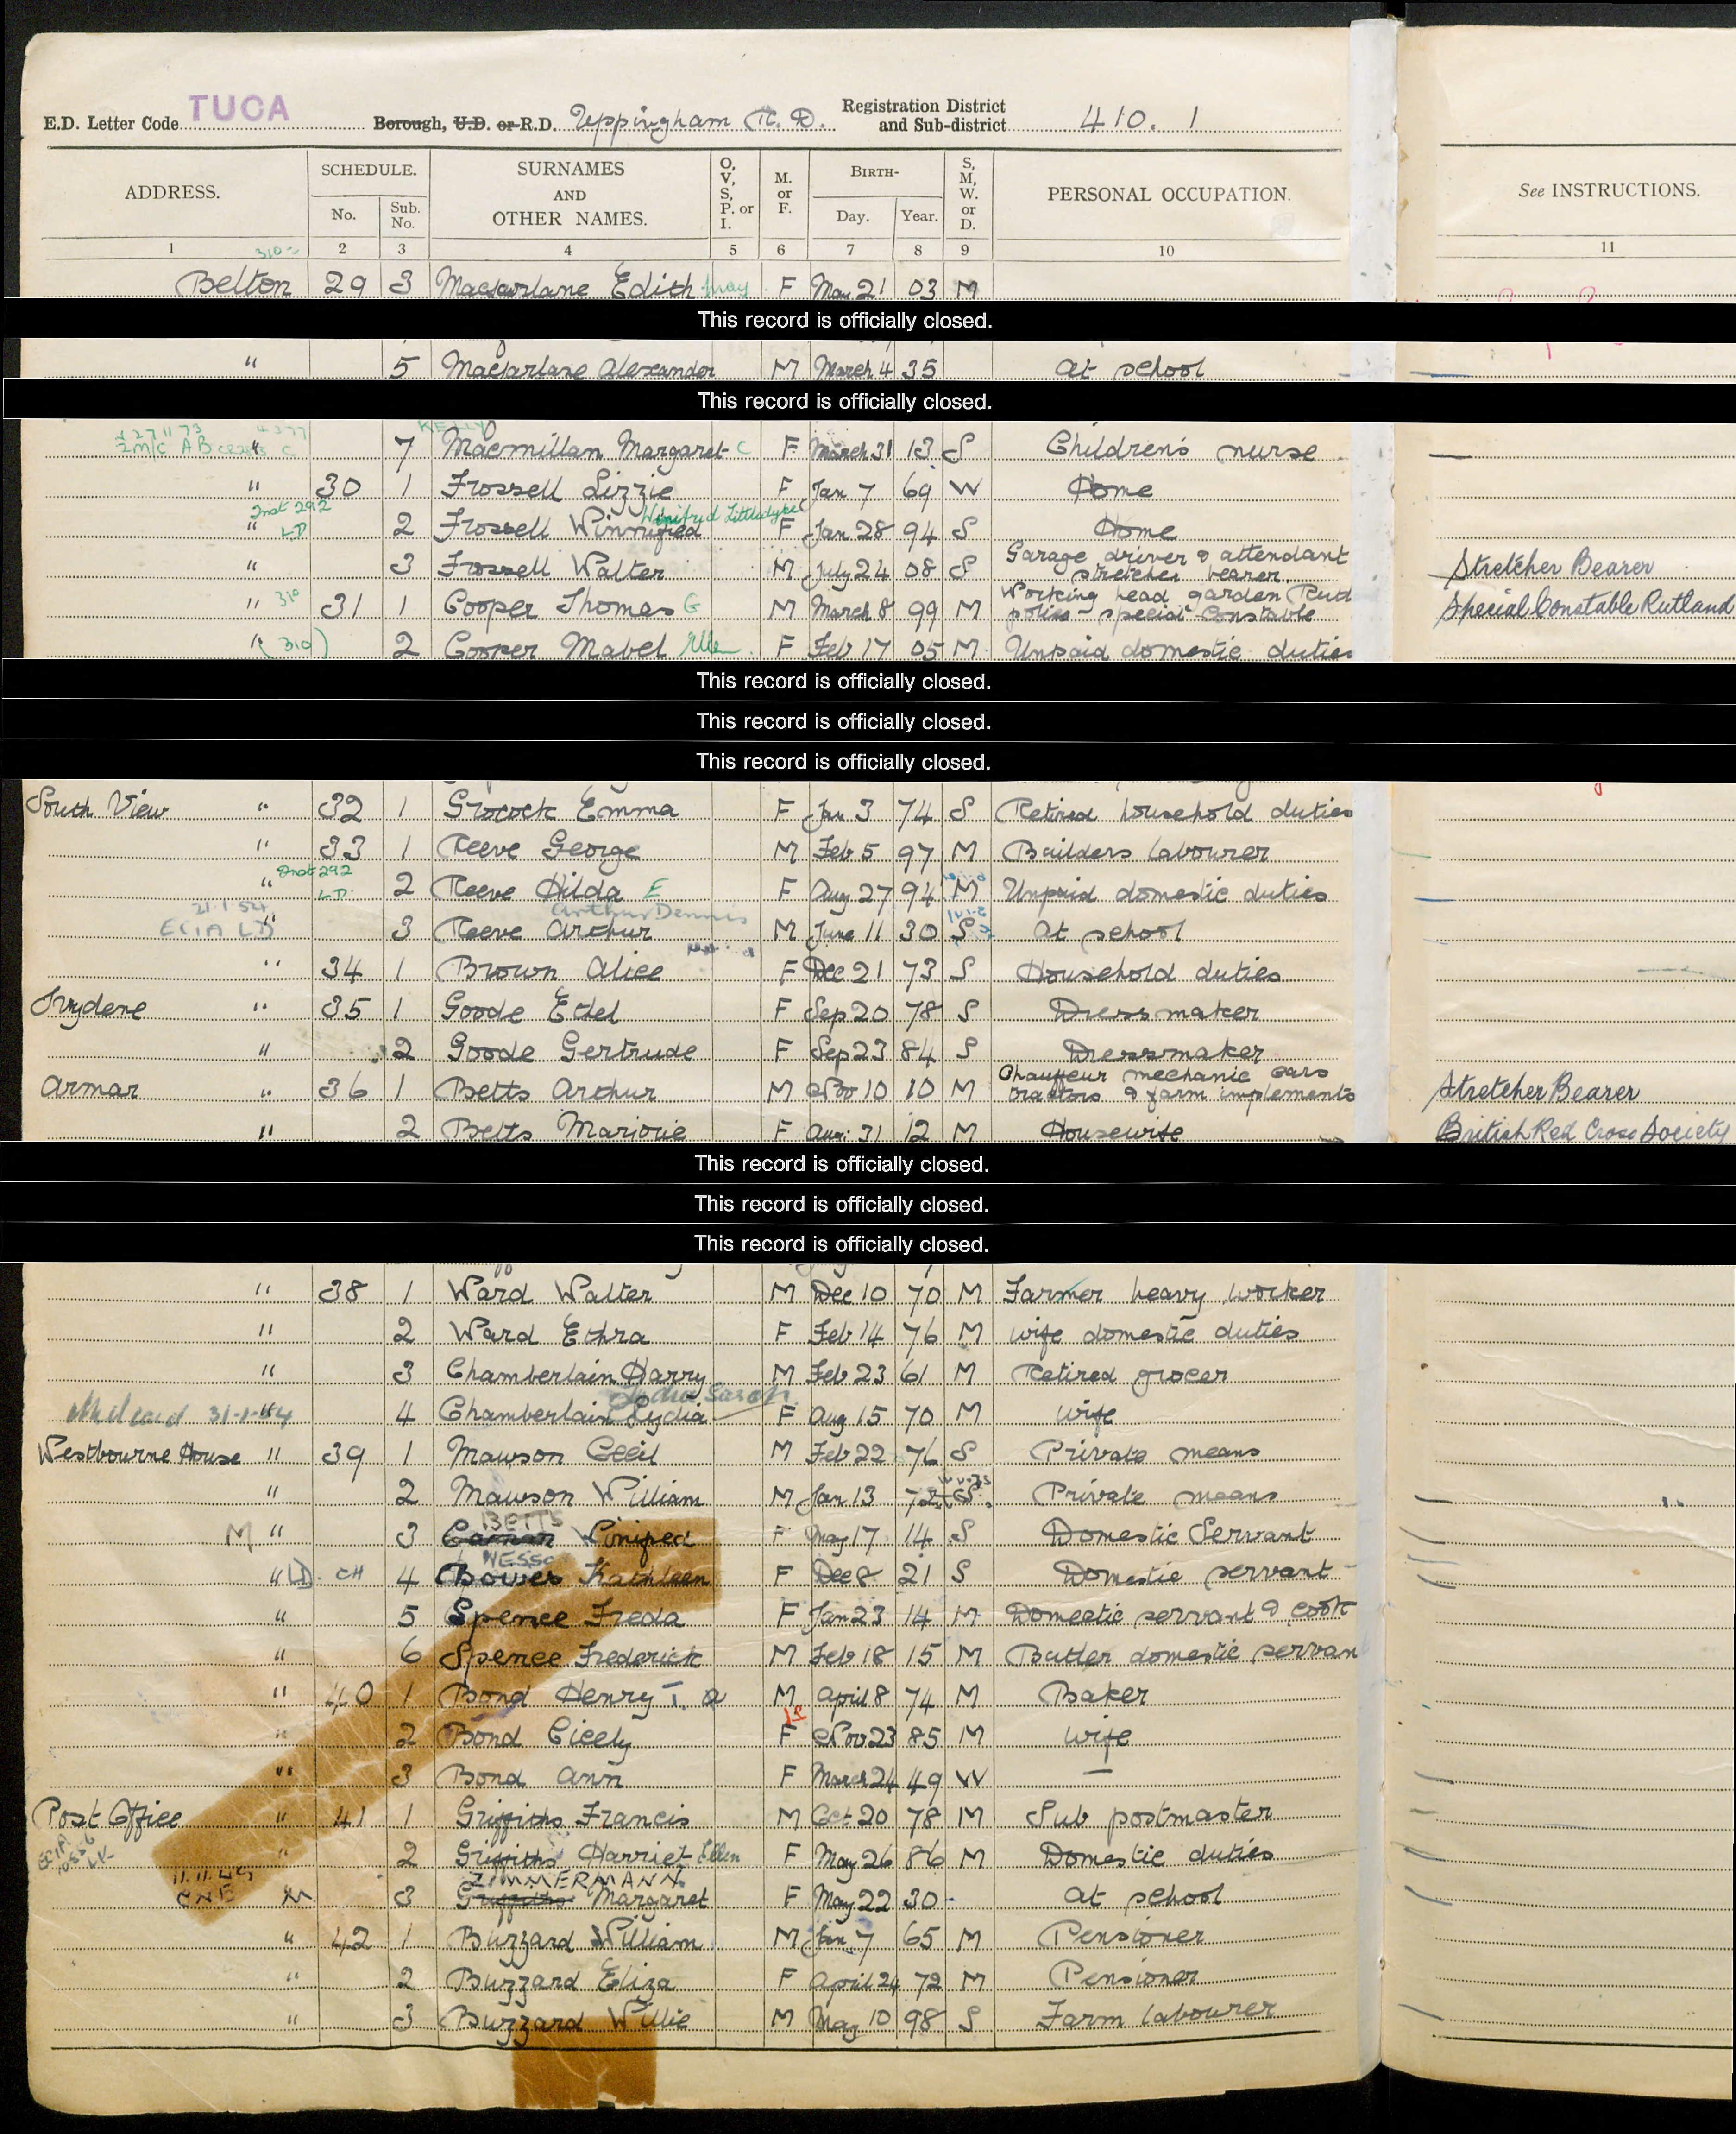 E.D. Letter Code TUCA Borough, U.D. or R.D. Uppingham R.D. Registration District and Sub-district 410. 1
ADDRESS. SCHEDULE. No. Sub. No. SURNAMES AND OTHER NAMES. O, V, S, P. or I. M. or F. BIRTH- Day. Year. S, M, W. or D. PERSONAL OCCUPATION. See INSTRUCTIONS.
1 2 3 4 5 6 7 8 9 10 11
310
Belton 29 3 Macfarlane Edith May F May 21 03 M
This record is officially closed.
" 5 Macfarlane Alexander M March 4 35 At school
This record is officially closed.
KELLY
" 7 Macmillan Margaret C F March 31 13 S Children's nurse
" 30 1 Frossell Lizzie F Jan 7 69 W Home
Inst 292 Winifred Littledyke
" LD 2 Frossell Winnifred F Jan 28 94 S Home
" 3 Frossell Walter M July 24 08 S Garage driver & attendant stretcher bearer. Stretcher Bearer
" 310 31 1 Cooper Thomas G M March 8 99 M Working head garden Rutd police - special Constable Special Constable Rutland
" (310) 2 Cooper Mabel F Feb 17 05 M Unpaid domestic duties
This record is officially closed.
This record is officially closed.
This record is officially closed.
South View " 32 1 Grocock Emma F Jan 3 74 S Retired household duties
" 33 1 Reeve George M Feb 5 97 M Builders labourer
Inst 292
" LD 2 Reeve Hilda E F Aug 27 94 M Unpaid domestic duties
21.1.54 Arthur Dennis
ECIA LD " 3 Reeve Arthur M June 11 30 S At school
" 34 1 Brown Alice F Dec 21 73 S Household duties
Ivydene " 35 1 Goode Edel F Sep 20 78 S Dressmaker
" 2 Goode Gertrude F Sep 23 84 S Dressmaker
Armar " 36 1 Betts Arthur M Nov 10 10 M Chauffeur mechanic cars tractors & farm implements Stretcher Bearer
" 2 Betts Marjorie F Aug 31 12 M Housewife British Red Cross Society
This record is officially closed.
This record is officially closed.
This record is officially closed.
" 38 1 Ward Walter M Dec 10 70 M Farmer heavy worker
" 2 Ward Ethra F Feb 14 76 M wife domestic duties
" 3 Chamberlain Harry M Feb 23 61 M Retired grocer
Lydia Sarah
31-1-44 " 4 Chamberlain Lydia F Aug 15 70 M wife
Westbourne House " 39 1 Mawson Cecil M Feb 22 76 S Private means
" 2 Mawson William M Jan 13 72 S Private means
BETTS
M " 3 Winifred F May 17 14 S Domestic Servant
" LD CH 4 Bowes Kathleen F Dec 8 21 S Domestic servant
" 5 Spence Freda F Jan 23 14 M Domestic servant & cook
" 6 Spence Frederick M Feb 18 15 M Butler domestic servan
" 40 1 Bond Henry T. a M April 8 74 M Baker
" 2 Bond Cicely F Nov 23 85 M wife
" 3 Bond Ann F March 24 49 W —
Post Office " 41 1 Griffiths Francis M Oct 20 78 M Sub postmaster
" 2 Griffiths Harriet Ellen F May 26 86 M Domestic duties
11.11.49 ZIMMERMANN
CNE M 3 Griffiths Margaret F May 22 30 - At school
" 42 1 Buzzard William M Jan 7 65 M Pensioner
" 2 Buzzard Eliza F April 24 72 M Pensioner
" 3 Buzzard Willie M May 10 98 S Farm labourer